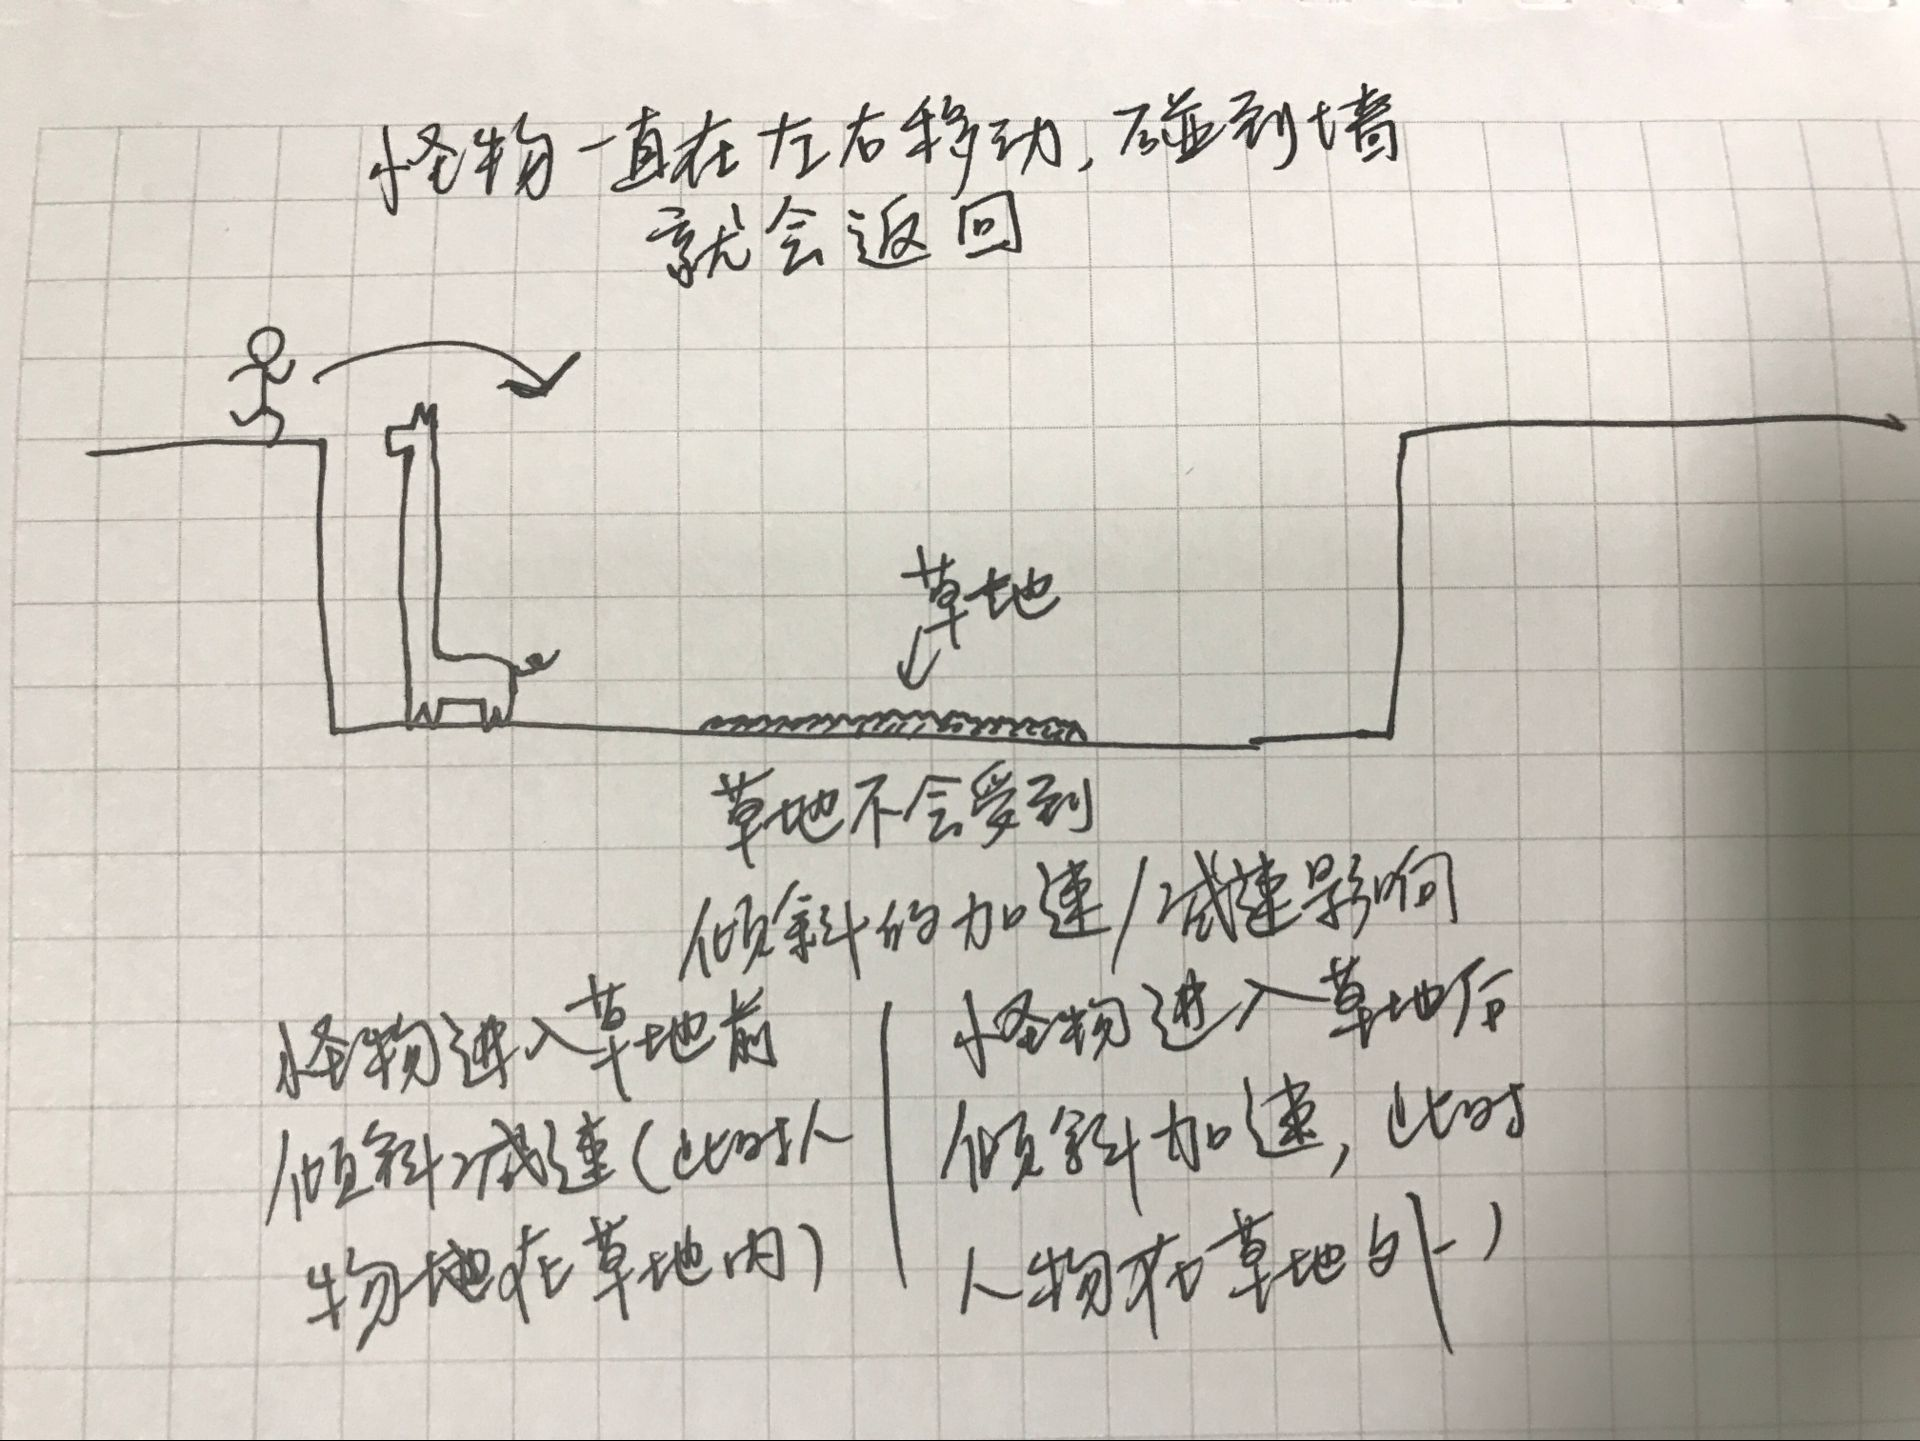 怪物一直在左右移动,碰到墙
就会返回
草地
草地不会受到
倾斜的加速/减速影响
怪物进入草地前
倾斜减速(此时人
物地在草地内)
怪物进入草地后
倾斜加速,此时
人物在草地外)